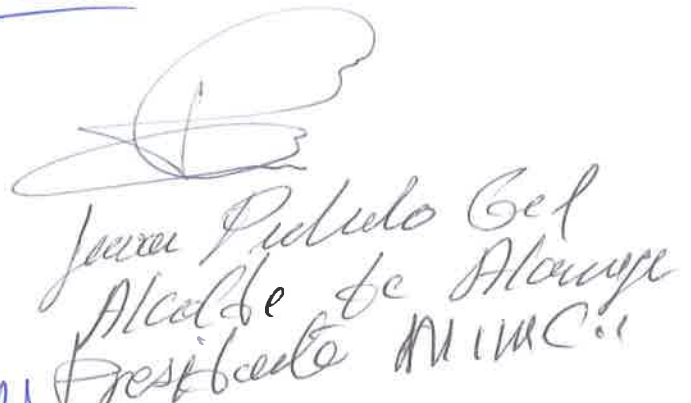 Juan Pulido Gil
Alcalde de Alange
Presidente